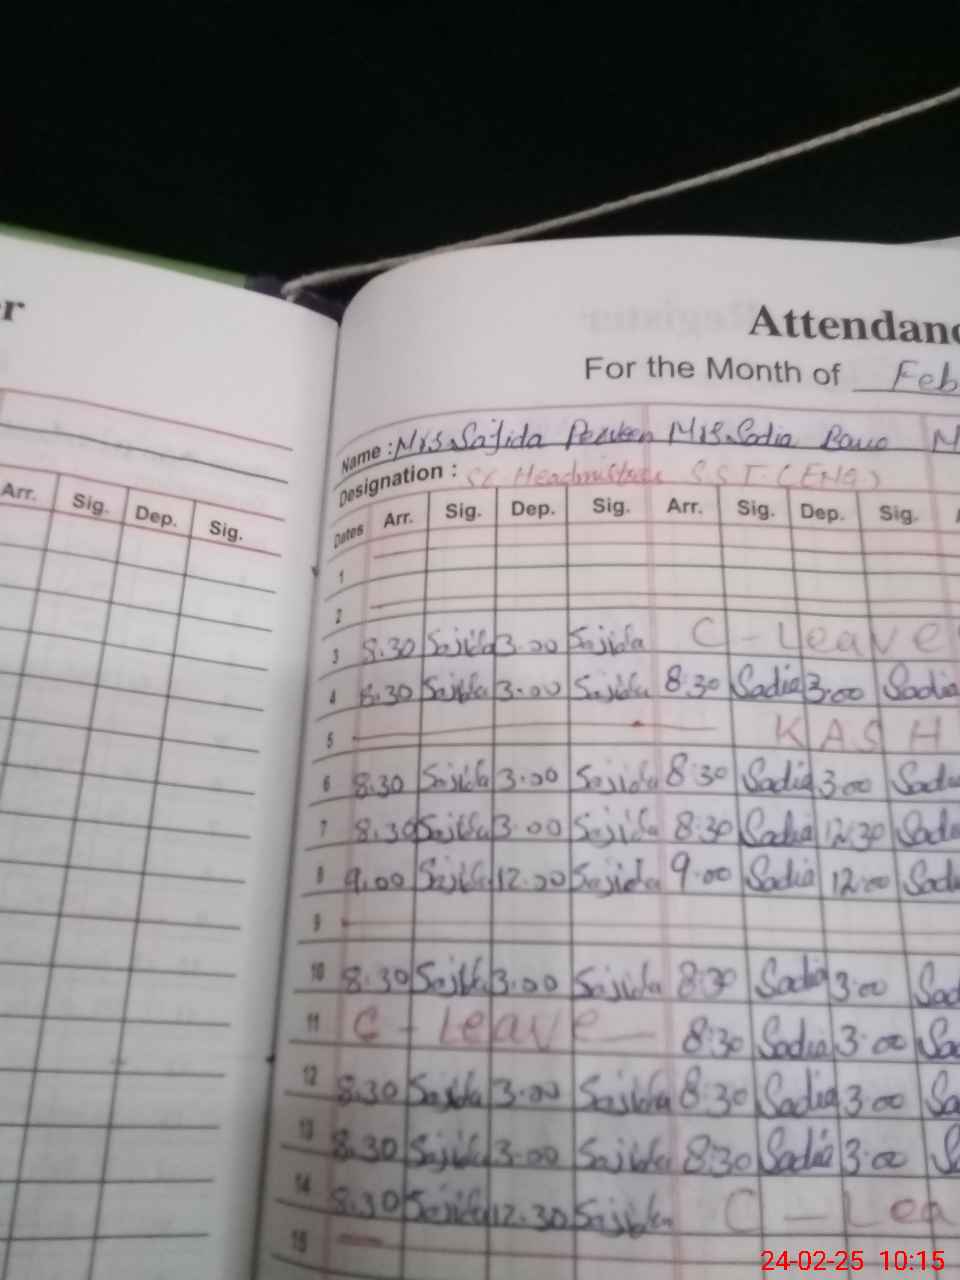 er
Attendanc
For the Month of Feb
Name : Mrs. Sajida Perveen Mrs. Sadia M
Designation : Headmistress S.S.T. (ENG)
Arr. Sig. Dep. Sig.
Dates Arr. Sig. Dep. Sig. Arr. Sig. Dep. Sig.
1
2
3 8.30 Sajida 3.00 Sajida C - Leave
4 8.30 Sajida 3.00 Sajida 8:30 Sadia 3:00 Sadia
5 KASH
6 8.30 Sajida 3.00 Sajida 8:30 Sadia 3:00 Sadi
7 8.30 Sajida 3.00 Sajida 8:30 Sadia 12:30 Sadi
8 9.00 Sajida 12.00 Sajida 9:00 Sadia 12:00 Sad
9
10 8.30 Sajida 3.00 Sajida 8:30 Sadia 3:00 Sad
11 C - Leave 8:30 Sadia 3:00 Sa
12 8.30 Sajida 3.00 Sajida 8:30 Sadia 3:00 Sa
13 8.30 Sajida 3.00 Sajida 8:30 Sadia 3:00 S
14 8.30 Sajida 12.30 Sajida C - Lea
15
24-02-25 10:15